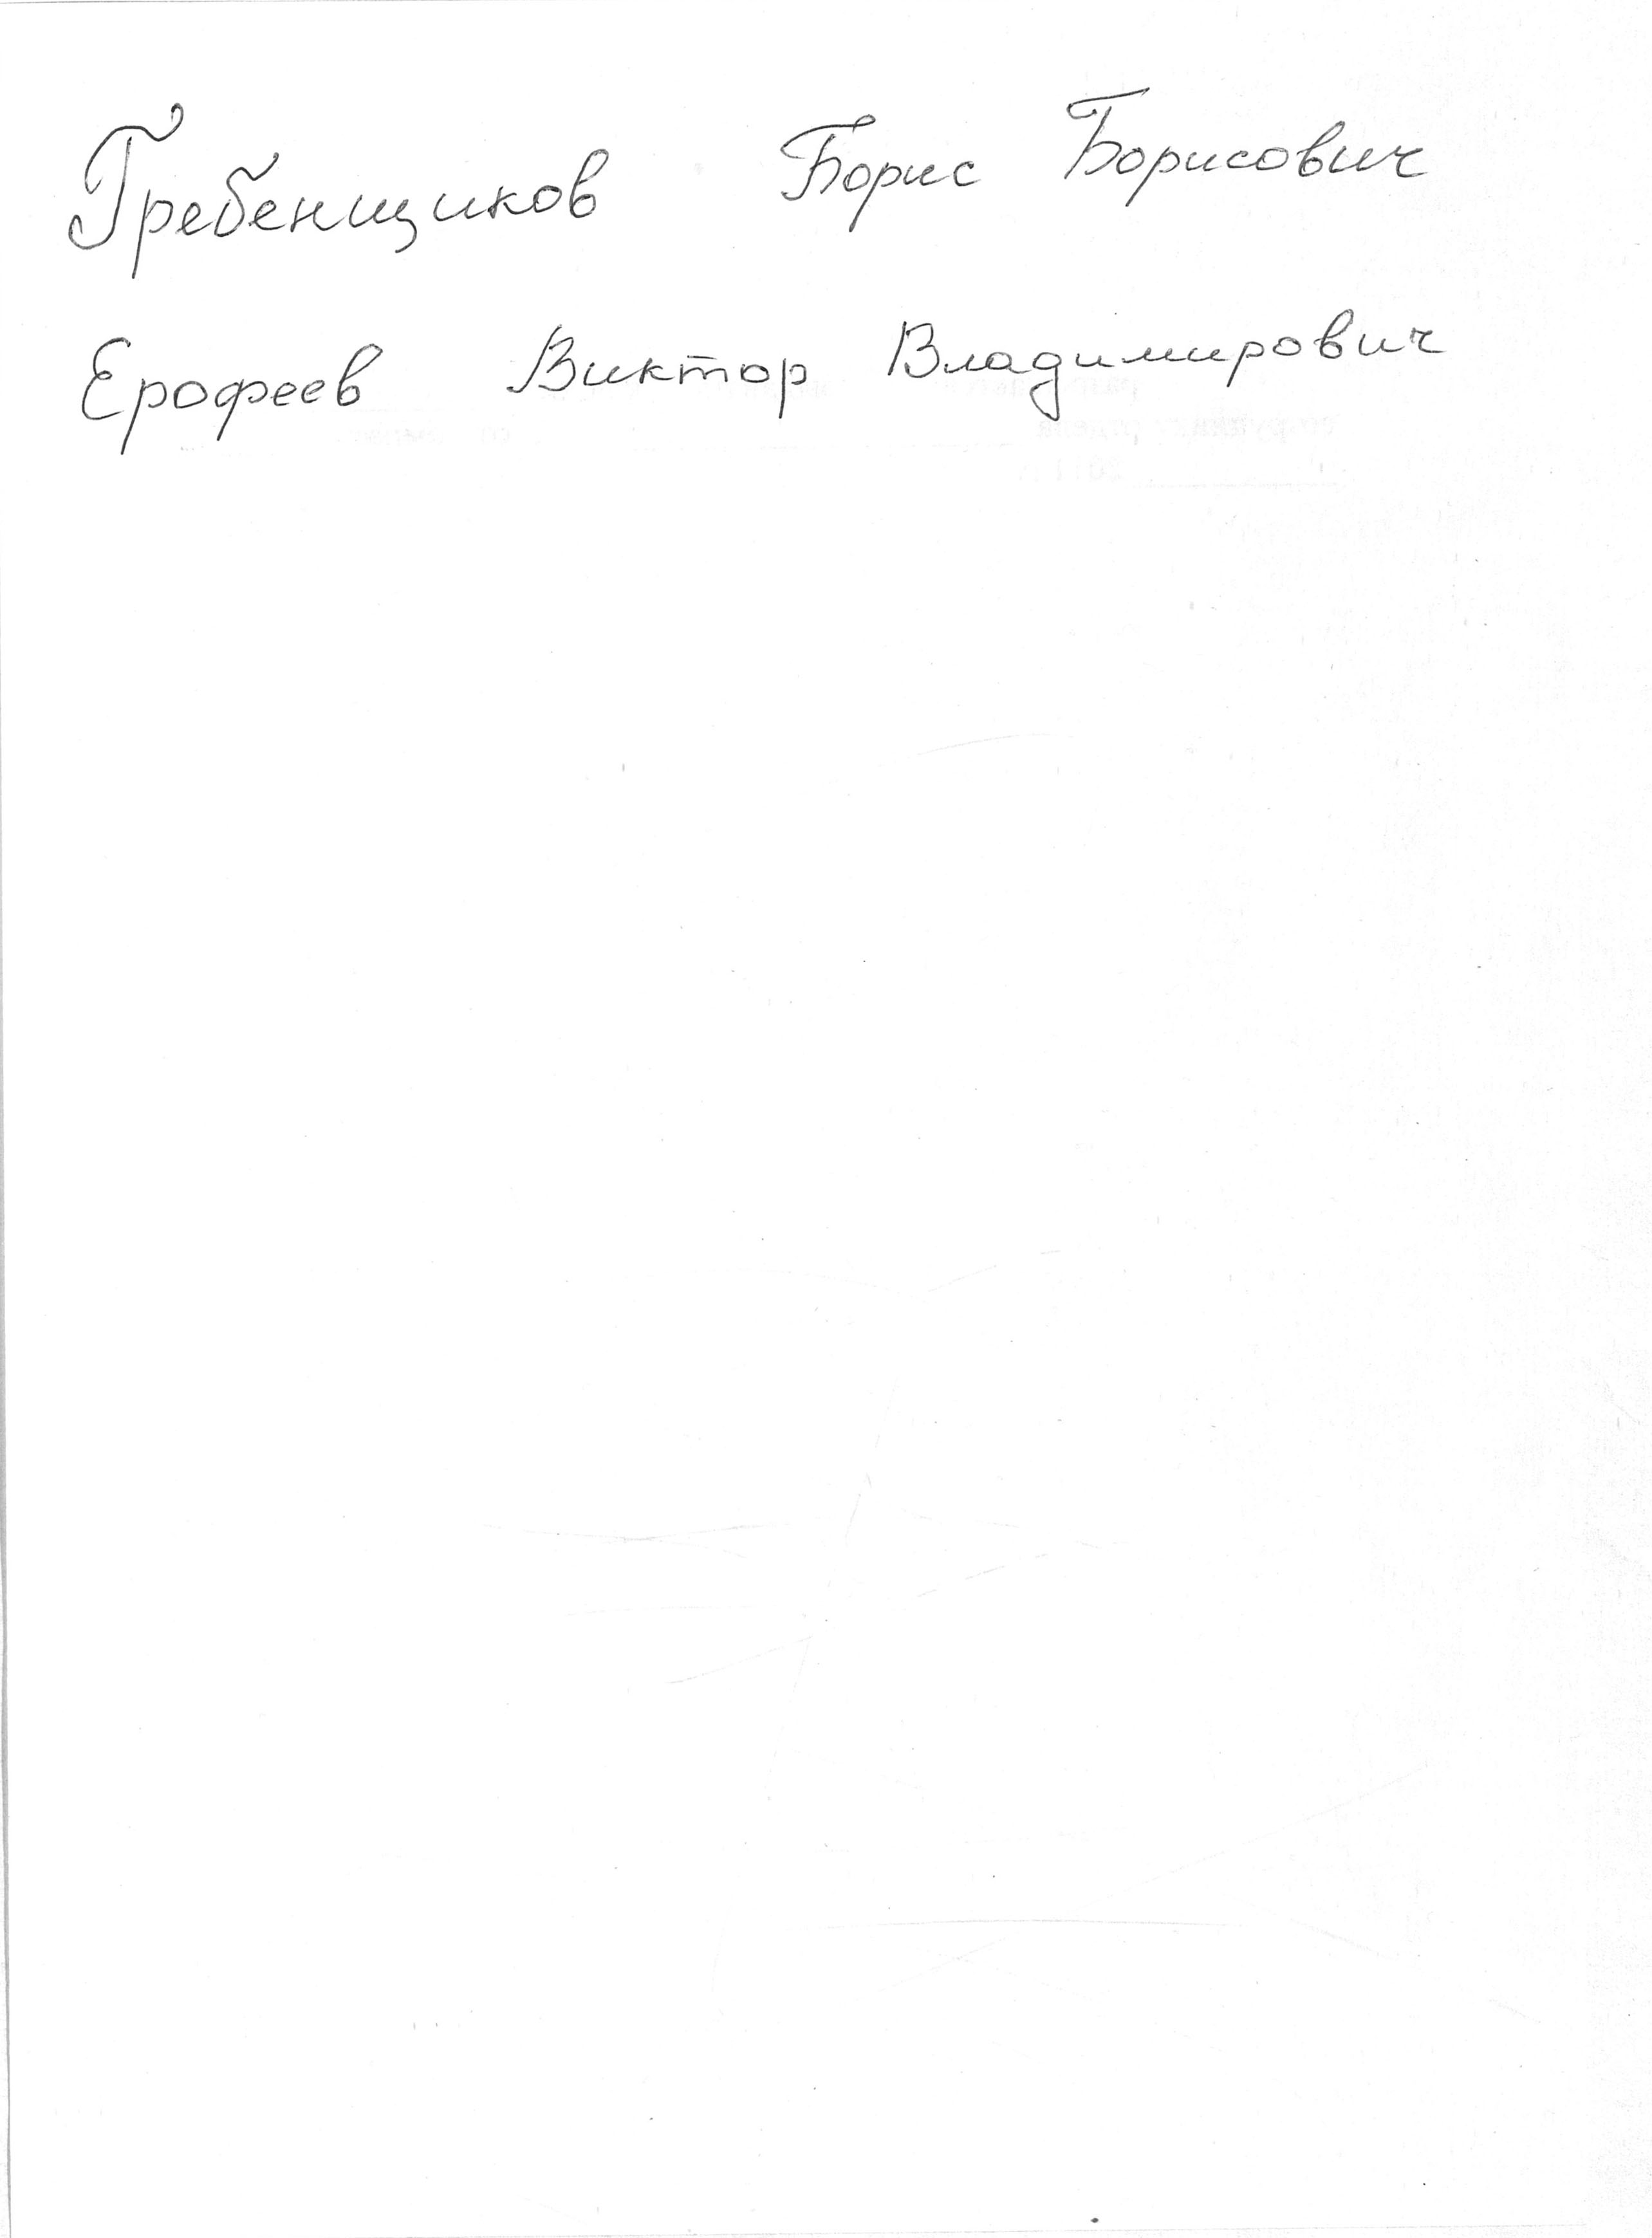 Гребенщиков Борис Борисович
Ерофеев Виктор Владимирович